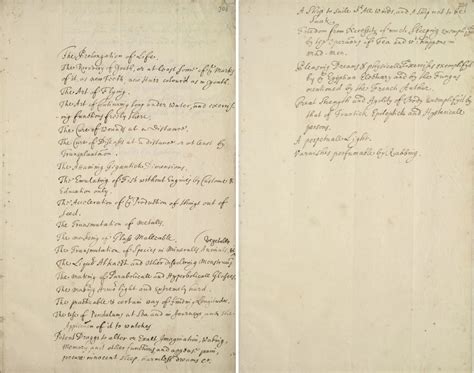 The Prolongation of Life.
The Recovery of Youth, or at least some of ye Marks
of it, as new Teeth, new Hair colour'd as in youth.
The Art of Flying.
The Art of Continuing long under Water, and exercising
functions freely there.
The Cure of Wounds at a Distance.
The Cure of Diseases at a distance or at least by
Transplantation.
The Attaining Gigantick Dimensions.
The Emulating of Fish without Engines by Custome &
Education only.
The Acceleration of ye Production of things out of
Seed.
The Transmutation of Metalls.
The makeing of Glass Malleable.
The Transmutation of Species in Mineralls, Animals, & Vegetables
The Liquid Alkaest and Other dissolving Menstruums
The making of Parabolicall and Hyperbolicall Glasses
The making Armor light and extremely hard.
The practicable & certain way of finding Longitudes.
The use of Pendulums at Sea and in Journeys, and the
Application of it to watches
Potent Druggs to alter or Exalt Imagination, Waking,
Memory and other functions and appease pain,
procure innocent sleep harmless dreams &c.
A Ship to saile wth All Winds, and A Ship not to be
Sunk.
Freedom from Necessity of much Sleeping exemplify'd
by ye Operations of Tea and wt happens in
mad-men.
Pleasing Dreams & physicall Exercises exemplify'd
by ye Egyptian Electuary and by the Fungus
mentioned by the French Author.
Great Strength and Agility of Body exemplify'd by
that of Frantick Epileptick and Hystericall
persons.
A perpetuall Light.
Varnishes perfumable by Rubbing.